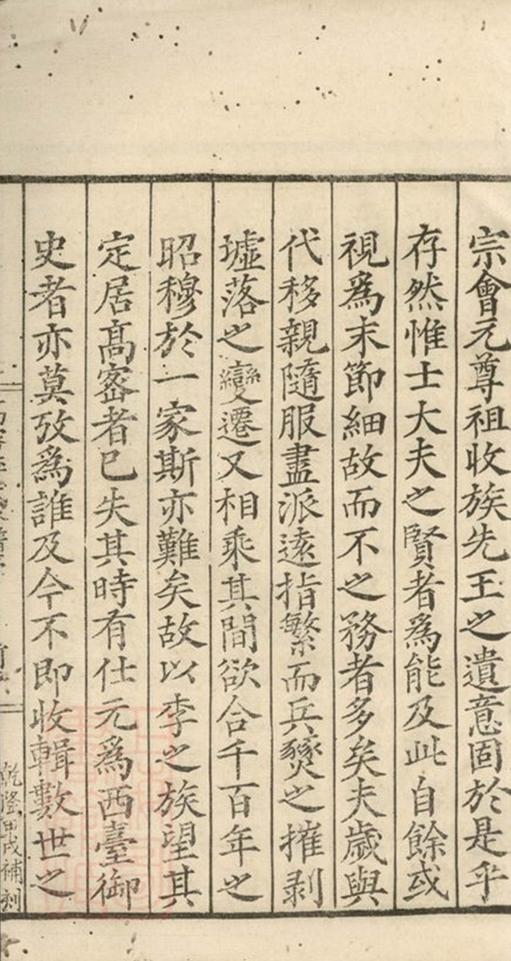 宗會元尊祖收族先王之遺意固於是乎
存然惟士大夫之賢者為能及此自餘或
視為末節細故而不之務者多矣夫歲與
代移親隨服盡派遠指繁而兵燹之摧剥
墟落之變遷又相乘其間欲合千百年之
昭穆於一家斯亦難矣故以李之族望其
定居髙宻者已失其時有仕元為西臺御
史者亦莫攷為誰及今不即收輯數世之
乾隆甲戌補刻